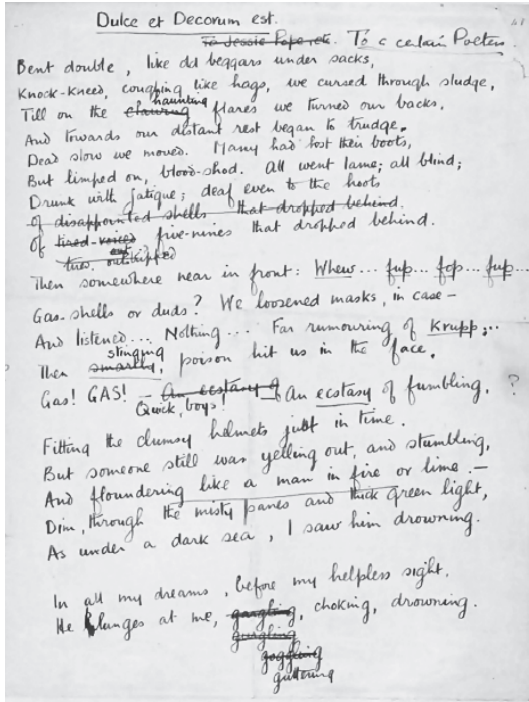 Dulce et Decorum est.
To Jessie Pope etc. To a certain Poetess
Bent double, like old beggars under sacks,
Knock-kneed, coughing like hags, we cursed through sludge,
haunting
Till on the clawing flares we turned our backs,
And towards our distant rest began to trudge.
Dead slow we moved. Many had lost their boots,
But limped on, blood-shod. All went lame; all blind;
Drunk with fatigue; deaf even to the hoots
of disappointed shells that dropped behind.
Of tired-voiced five-nines that dropped behind.
outstripped
Then somewhere near in front: Whew... fup... fop... fup...
Gas-shells or duds? We loosened masks, in case –
And listened... Nothing... Far rumouring of Krupp;..
stinging
Then smartly, poison hit us in the face.
Gas! GAS! – An ecstasy of An ecstasy of fumbling, ?
Quick, boys!
Fitting the clumsy helmets just in time.
But someone still was yelling out, and stumbling,
And floundering like a man in fire or lime. –
Dim, through the misty panes and thick green light,
As under a dark sea, I saw him drowning.
In all my dreams, before my helpless sight,
He lunges at me, gargling, choking, drowning.
gurgling
goggling
guttering